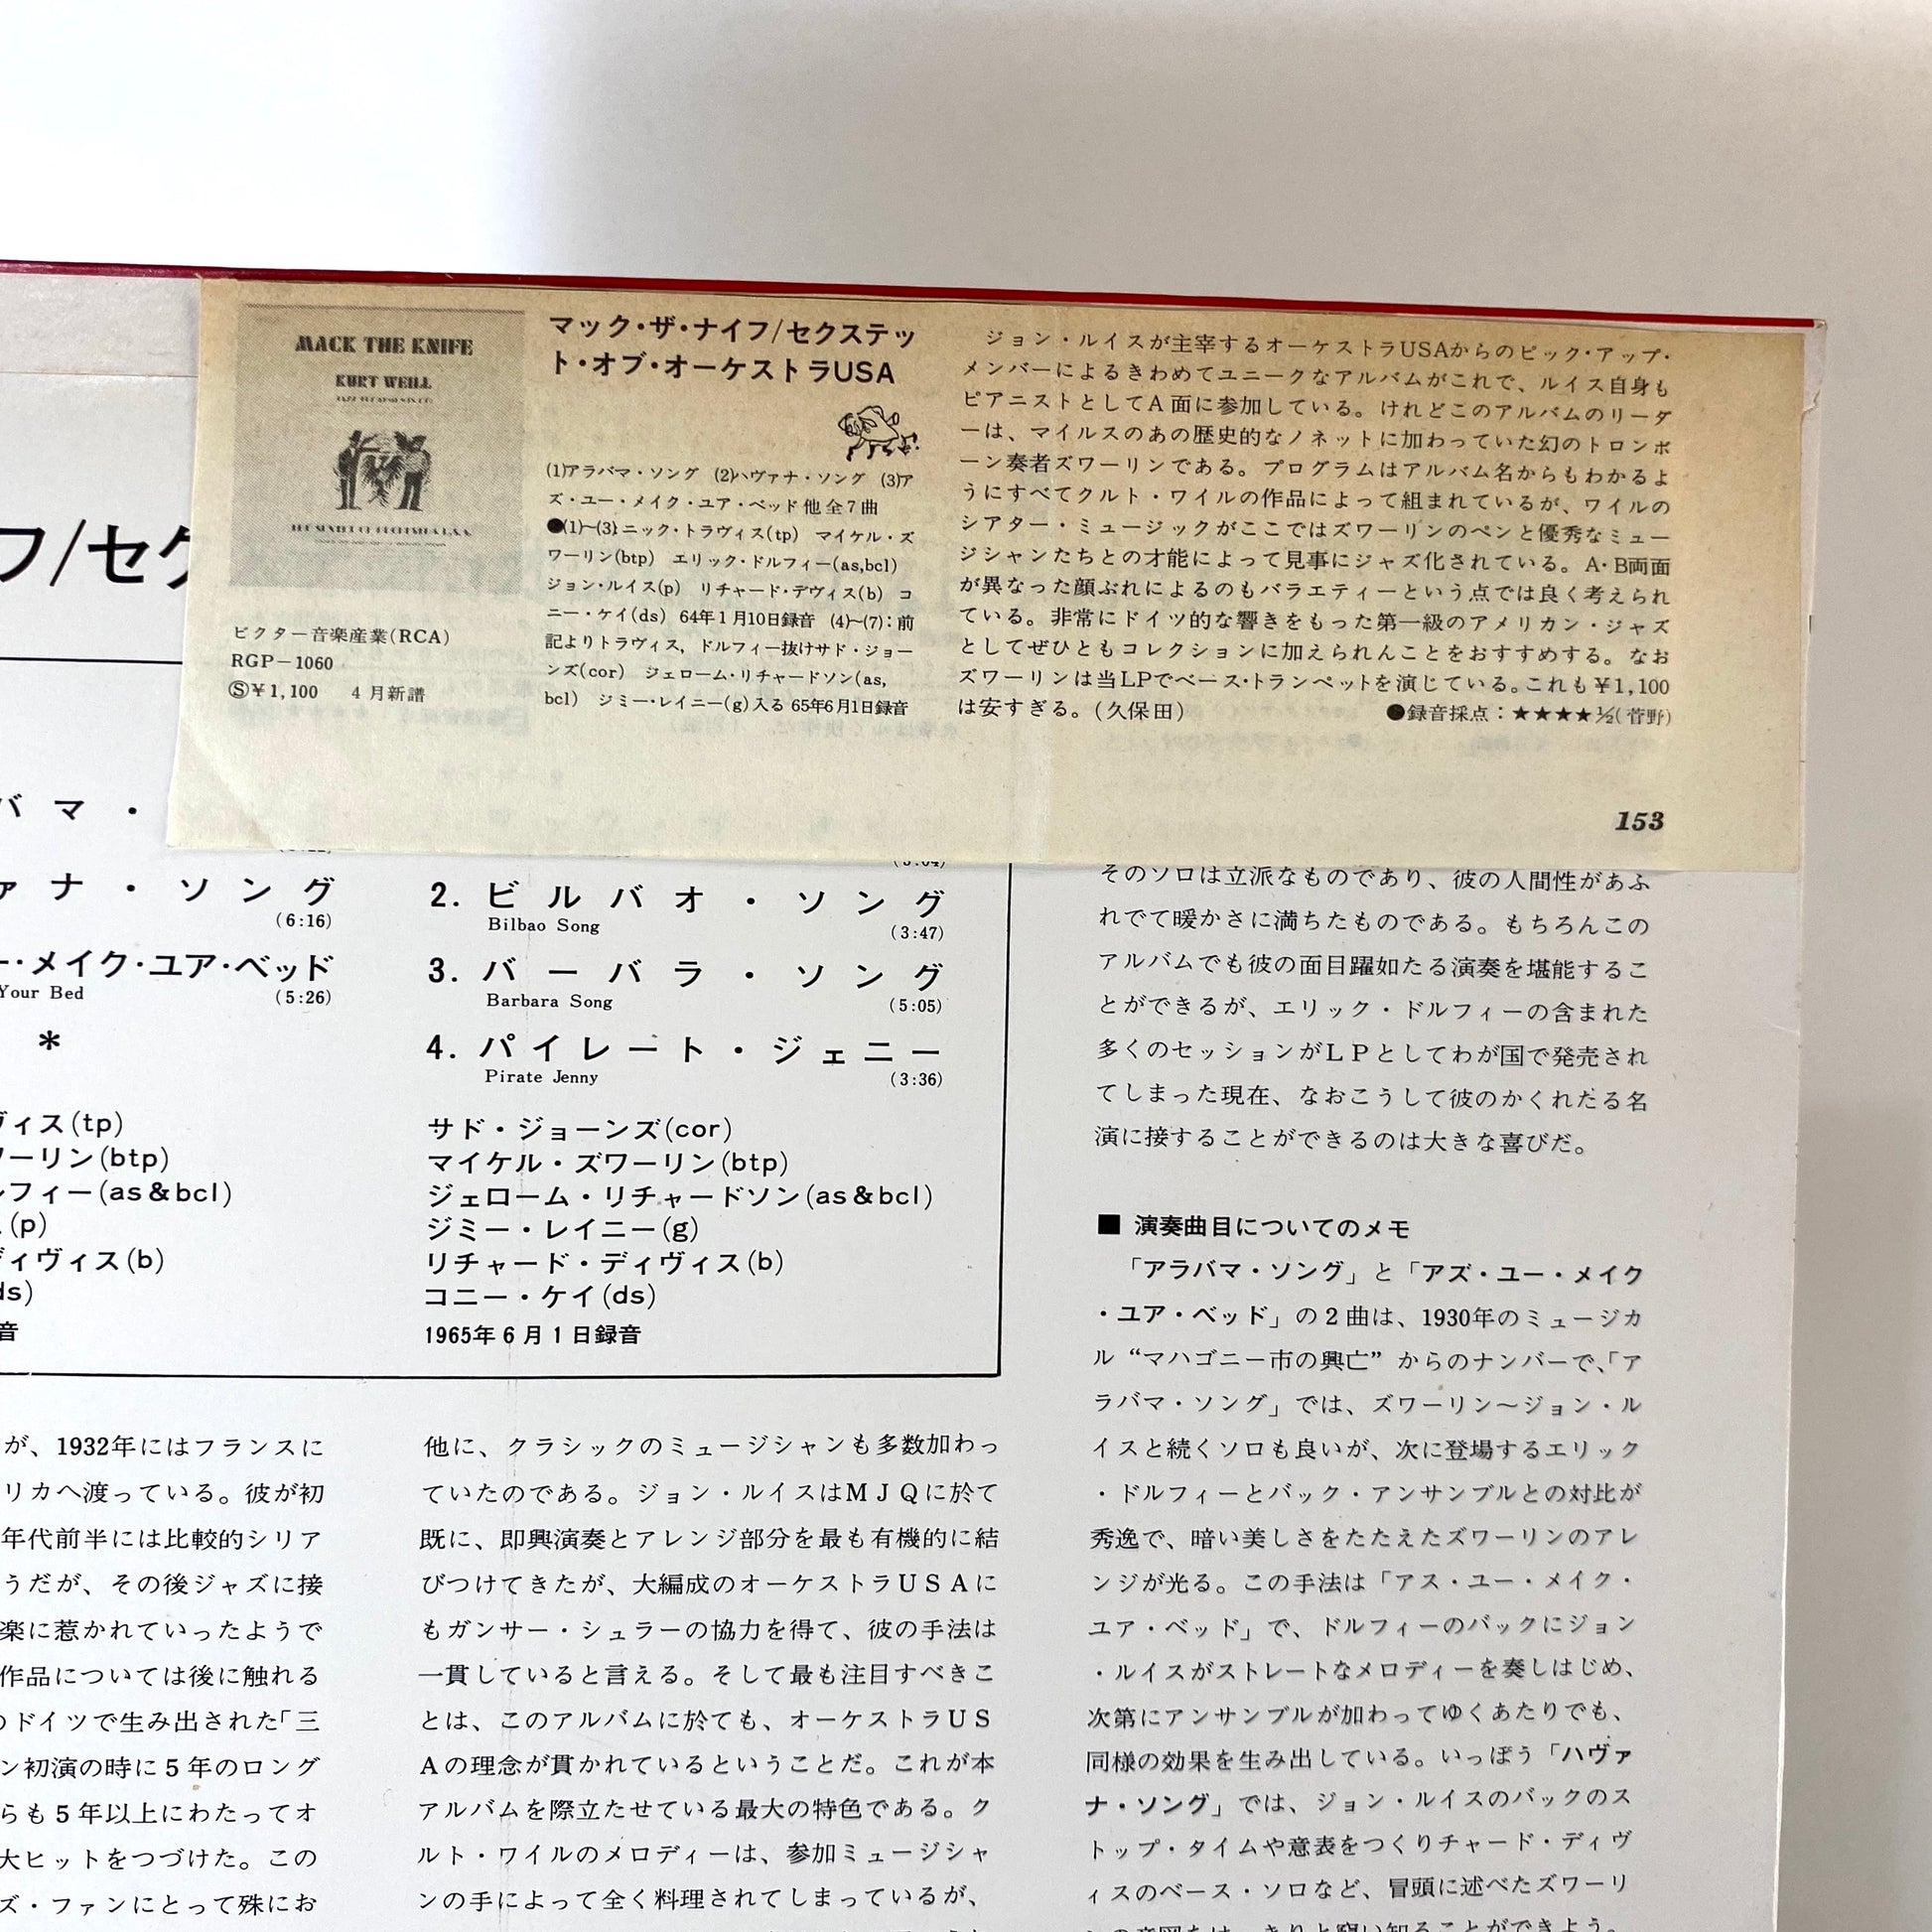 MACK THE KNIFE
KURT WEILL
ビクター音楽産業(RCA)
RGP−1060
Ⓢ¥1,100 4月新譜
マック・ザ・ナイフ/セクステッ
ト・オブ・オーケストラUSA
(1)アラバマ・ソング (2)ハヴァナ・ソング (3)ア
ズ・ユー・メイク・ユア・ベッド他全7曲
●(1)〜(3):ニック・トラヴィス(tp) マイケル・ズ
ワーリン(btp) エリック・ドルフィー(as,bcl)
ジョン・ルイス(p) リチャード・デヴィス(b) コ
ニー・ケイ(ds) 64年1月10日録音 (4)〜(7):前
記よりトラヴィス, ドルフィー抜けサド・ジョー
ンズ(cor) ジェローム・リチャードソン(as,
bcl) ジミー・レイニー(g)入る 65年6月1日録音
ジョン・ルイスが主宰するオーケストラUSAからのピック・アップ・
メンバーによるきわめてユニークなアルバムがこれで、ルイス自身も
ピアニストとしてA面に参加している。けれどこのアルバムのリーダ
ーは、マイルスのあの歴史的なノネットに加わっていた幻のトロンボ
ーン奏者ズワーリンである。プログラムはアルバム名からもわかるよ
うにすべてクルト・ワイルの作品によって組まれているが、ワイルの
シアター・ミュージックがここではズワーリンのペンと優秀なミュー
ジシャンたちとの才能によって見事にジャズ化されている。A・B両面
が異なった顔ぶれによるのもバラエティーという点では良く考えられ
ている。非常にドイツ的な響きをもった第一級のアメリカン・ジャズ
としてぜひともコレクションに加えられんことをおすすめする。なお
ズワーリンは当LPでベース・トランペットを演じている。これも¥1,100
は安すぎる。(久保田)
●録音採点：★★★★½(菅野)
153
フ/セク
バマ・
ァナ・ソング
(6:16)
ー・メイク・ユア・ベッド
Your Bed (5:26)
*
ヴィス(tp)
ワーリン(btp)
ルフィー(as&bcl)
(p)
ディヴィス(b)
ds)
音
(3:04)
2. ビルバオ・ソング
Bilbao Song (3:47)
3. バーバラ・ソング
Barbara Song (5:05)
4. パイレート・ジェニー
Pirate Jenny (3:36)
サド・ジョーンズ(cor)
マイケル・ズワーリン(btp)
ジェローム・リチャードソン(as&bcl)
ジミー・レイニー(g)
リチャード・ディヴィス(b)
コニー・ケイ(ds)
1965年6月1日録音
が、1932年にはフランスに
リカへ渡っている。彼が初
年代前半には比較的シリア
うだが、その後ジャズに接
楽に惹かれていったようで
作品については後に触れる
のドイツで生み出された「三
ン初演の時に5年のロング
らも5年以上にわたってオ
大ヒットをつづけた。この
ズ・ファンにとって殊にお
他に、クラシックのミュージシャンも多数加わっ
ていたのである。ジョン・ルイスはMJQに於て
既に、即興演奏とアレンジ部分を最も有機的に結
びつけてきたが、大編成のオーケストラUSAに
もガンサー・シュラーの協力を得て、彼の手法は
一貫していると言える。そして最も注目すべきこ
とは、このアルバムに於ても、オーケストラUS
Aの理念が貫かれているということだ。これが本
アルバムを際立たせている最大の特色である。ク
ルト・ワイルのメロディーは、参加ミュージシャ
ンの手によって全く料理されてしまっているが、
そのソロは立派なものであり、彼の人間性があふ
れでて暖かさに満ちたものである。もちろんこの
アルバムでも彼の面目躍如たる演奏を堪能するこ
とができるが、エリック・ドルフィーの含まれた
多くのセッションがLPとしてわが国で発売され
てしまった現在、なおこうして彼のかくれたる名
演に接することができるのは大きな喜びだ。
■ 演奏曲目についてのメモ
「アラバマ・ソング」と「アズ・ユー・メイク
・ユア・ベッド」の2曲は、1930年のミュージカ
ル“マハゴニー市の興亡”からのナンバーで、「ア
ラバマ・ソング」では、ズワーリン〜ジョン・ル
イスと続くソロも良いが、次に登場するエリック
・ドルフィーとバック・アンサンブルとの対比が
秀逸で、暗い美しさをたたえたズワーリンのアレ
ンジが光る。この手法は「アス・ユー・メイク・
ユア・ベッド」で、ドルフィーのバックにジョン
・ルイスがストレートなメロディーを奏しはじめ、
次第にアンサンブルが加わってゆくあたりでも、
同様の効果を生み出している。いっぽう「ハヴァ
ナ・ソング」では、ジョン・ルイスのバックのス
トップ・タイムや意表をつくリチャード・ディヴ
ィスのベース・ソロなど、冒頭に述べたズワーリ